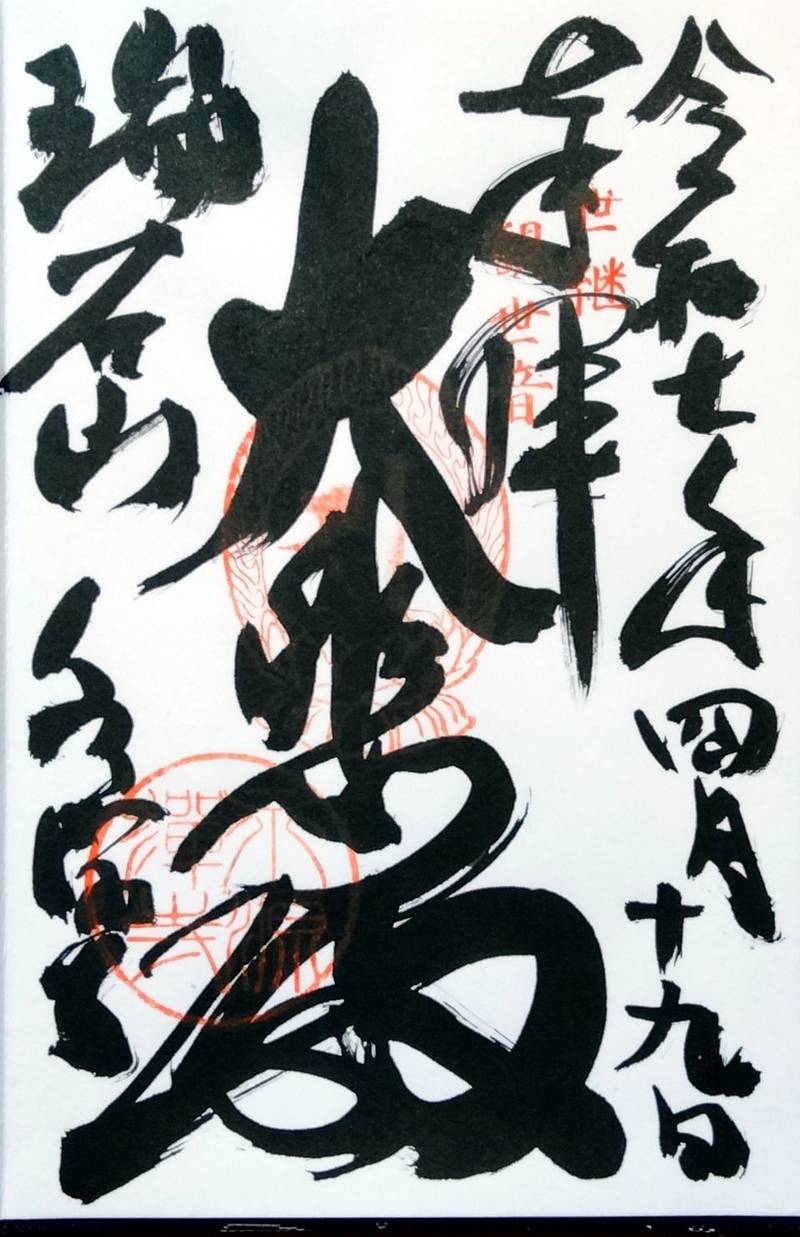 令和七年四月十九日
奉拝
世継
観世音
大悲殿
瑞石山
永源寺